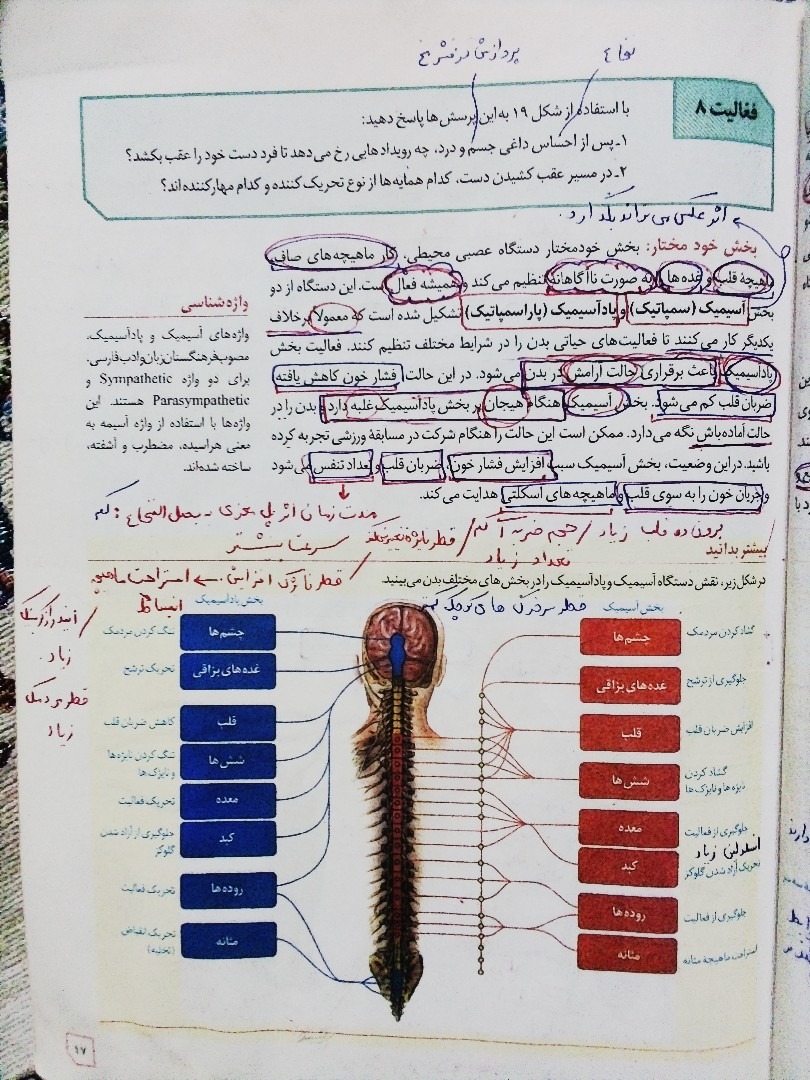 نخاع
پردازش در قشر مخ
فعالیت ۸
با استفاده از شکل ۱۹ به این پرسش‌ها پاسخ دهید:
۱ـ پس از احساس داغی جسم و درد، چه رویدادهایی رخ می‌دهد تا فرد دست خود را عقب بکشد؟
۲ـ در مسیر عقب کشیدن دست، کدام همایه‌ها از نوع تحریک کننده و کدام مهارکننده‌اند؟
اثر عکس می‌تواند بگذارد.
بخش خود مختار: بخش خودمختار دستگاه عصبی محیطی، کار ماهیچه‌های صاف،
ماهیچهٔ قلب و غده‌ها را به صورت ناآگاهانه تنظیم می‌کند و همیشه فعال است. این دستگاه از دو
بخش آسیمیک (سمپاتیک) و پادآسیمیک (پاراسمپاتیک) تشکیل شده است که معمولاً برخلاف
یکدیگر کار می‌کنند تا فعالیت‌های حیاتی بدن را در شرایط مختلف تنظیم کنند. فعالیت بخش
پادآسیمیک باعث برقراری حالت آرامش در بدن می‌شود. در این حالت فشار خون کاهش یافته
ضربان قلب کم می‌شود. بخش آسیمیک هنگام هیجان بر بخش پادآسیمیک غلبه دارد و بدن را در
حالت آماده‌باش نگه می‌دارد. ممکن است این حالت را هنگام شرکت در مسابقهٔ ورزشی تجربه کرده
باشید. در این وضعیت، بخش آسیمیک سبب افزایش فشار خون، ضربان قلب و تعداد تنفس می‌شود
و جریان خون را به سوی قلب و ماهیچه‌های اسکلتی هدایت می‌کند.
واژه‌شناسی
واژه‌های آسیمیک و پادآسیمیک،
مصوب فرهنگستان زبان و ادب فارسی،
برای دو واژه Sympathetic و
Parasympathetic هستند. این
واژه‌ها با استفاده از واژه آسیمه به
معنی هراسیده، مضطرب و آشفته،
ساخته شده‌اند.
برون ده قلب زیاد / حجم ضربه‌ای
تعداد زیاد
سرعت بیشتر
بیشتر بدانید
در شکل زیر، نقش دستگاه آسیمیک و پادآسیمیک را در بخش‌های مختلف بدن می‌بینید.
انبساط
بخش آسیمیک
گشاد کردن مردمک
چشم‌ها
جلوگیری از ترشح
غده‌های بزاقی
افزایش ضربان قلب
قلب
گشاد کردن
نایژه‌ها و نایژک‌ها
شش‌ها
جلوگیری از فعالیت
معده
تحریک آزاد شدن گلوکز
کبد
جلوگیری از فعالیت
روده‌ها
استراحت ماهیچهٔ مثانه
مثانه
بخش پادآسیمیک
چشم‌ها
تنگ کردن مردمک
غده‌های بزاقی
تحریک ترشح
قلب
کاهش ضربان قلب
شش‌ها
تنگ کردن نایژه‌ها
و نایژک‌ها
معده
تحریک فعالیت
کبد
جلوگیری از آزاد شدن
گلوکز
روده‌ها
تحریک فعالیت
مثانه
تحریک انقباض
(تخلیه)
زیاد
قطر مردمک
زیاد
۱۷